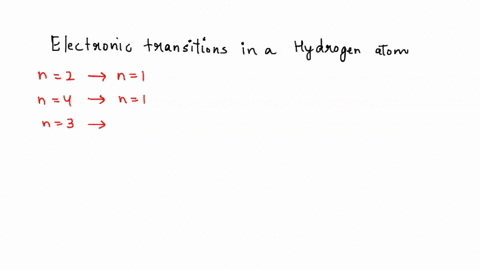 Electronic transitions in a Hydrogen atom
n = 2 → n = 1
n = 4 → n = 1
n = 3 →